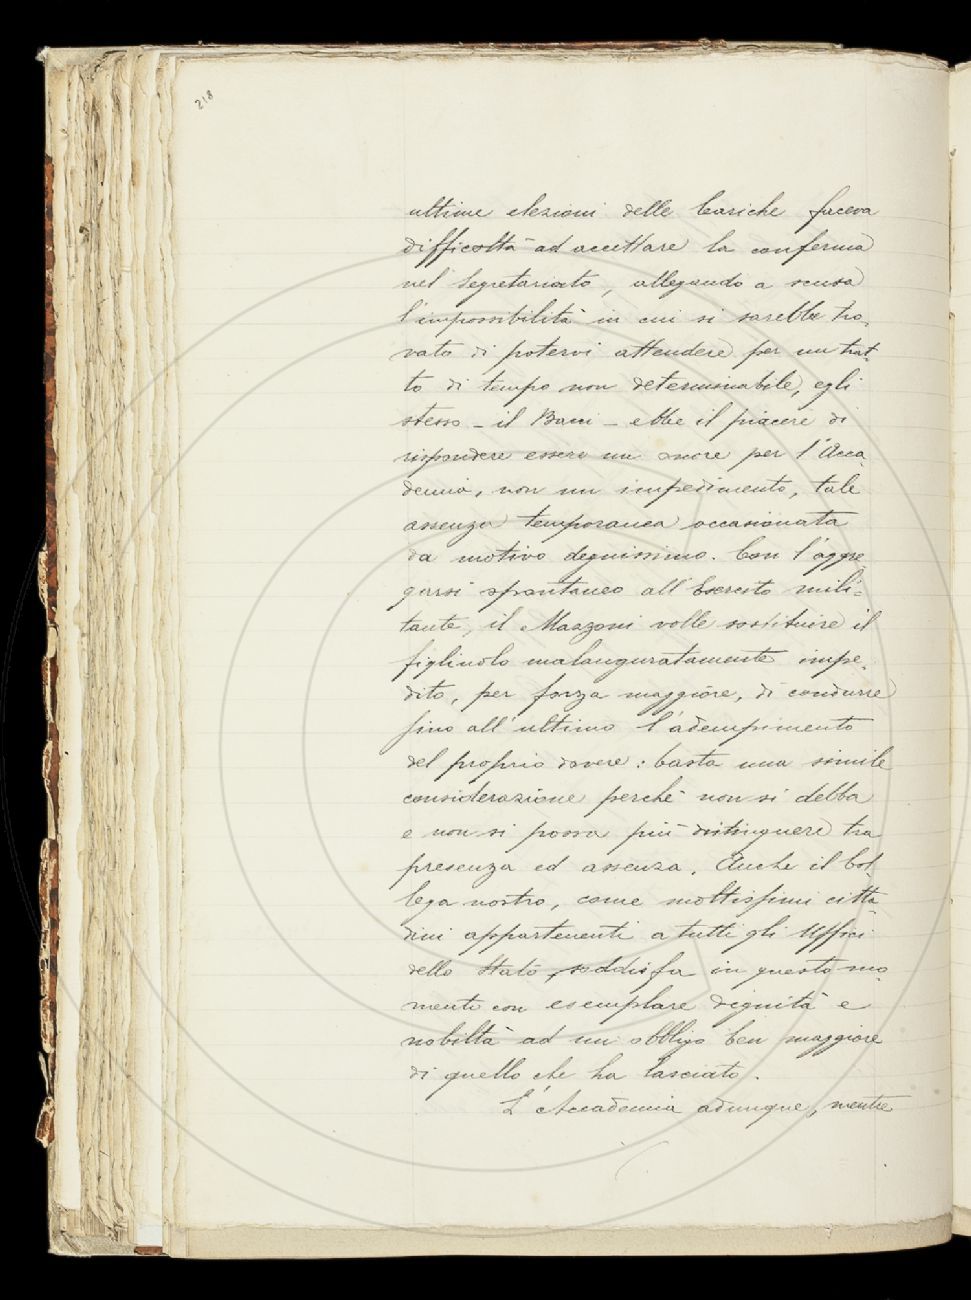 218
ultime elezioni delle Cariche faceva
difficoltà ad accettare la conferma
nel Segretariato, allegando a scusa
l'impossibilità in cui si sarebbe tro-
vato di potervi attendere per un trat-
to di tempo non determinabile, egli
stesso - il Bacci - ebbe il piacere di
rispondere essere un onore per l'Acca-
demia, non un impedimento, tale
assenza temporanea occasionata
da motivo degnissimo. Con l'aggre-
garsi spontaneo all'Esercito mili-
tante, il Manzoni volle sostituire il
figliuolo malauguratamente impe-
dito, per forza maggiore, di condurre
fino all'ultimo l'adempimento
del proprio dovere: basta una simile
considerazione perchè non si debba
e non si possa più distinguere tra
presenza ed assenza. Anche il Col-
lega nostro, come moltissimi citta
dini appartenenti a tutti gli Uffici
dello Stato, soddisfa in questo mo-
mento con esemplare dignità e
nobiltà ad un obbligo ben maggiore
di quello che ha lasciato.
L'Accademia adunque, mentre